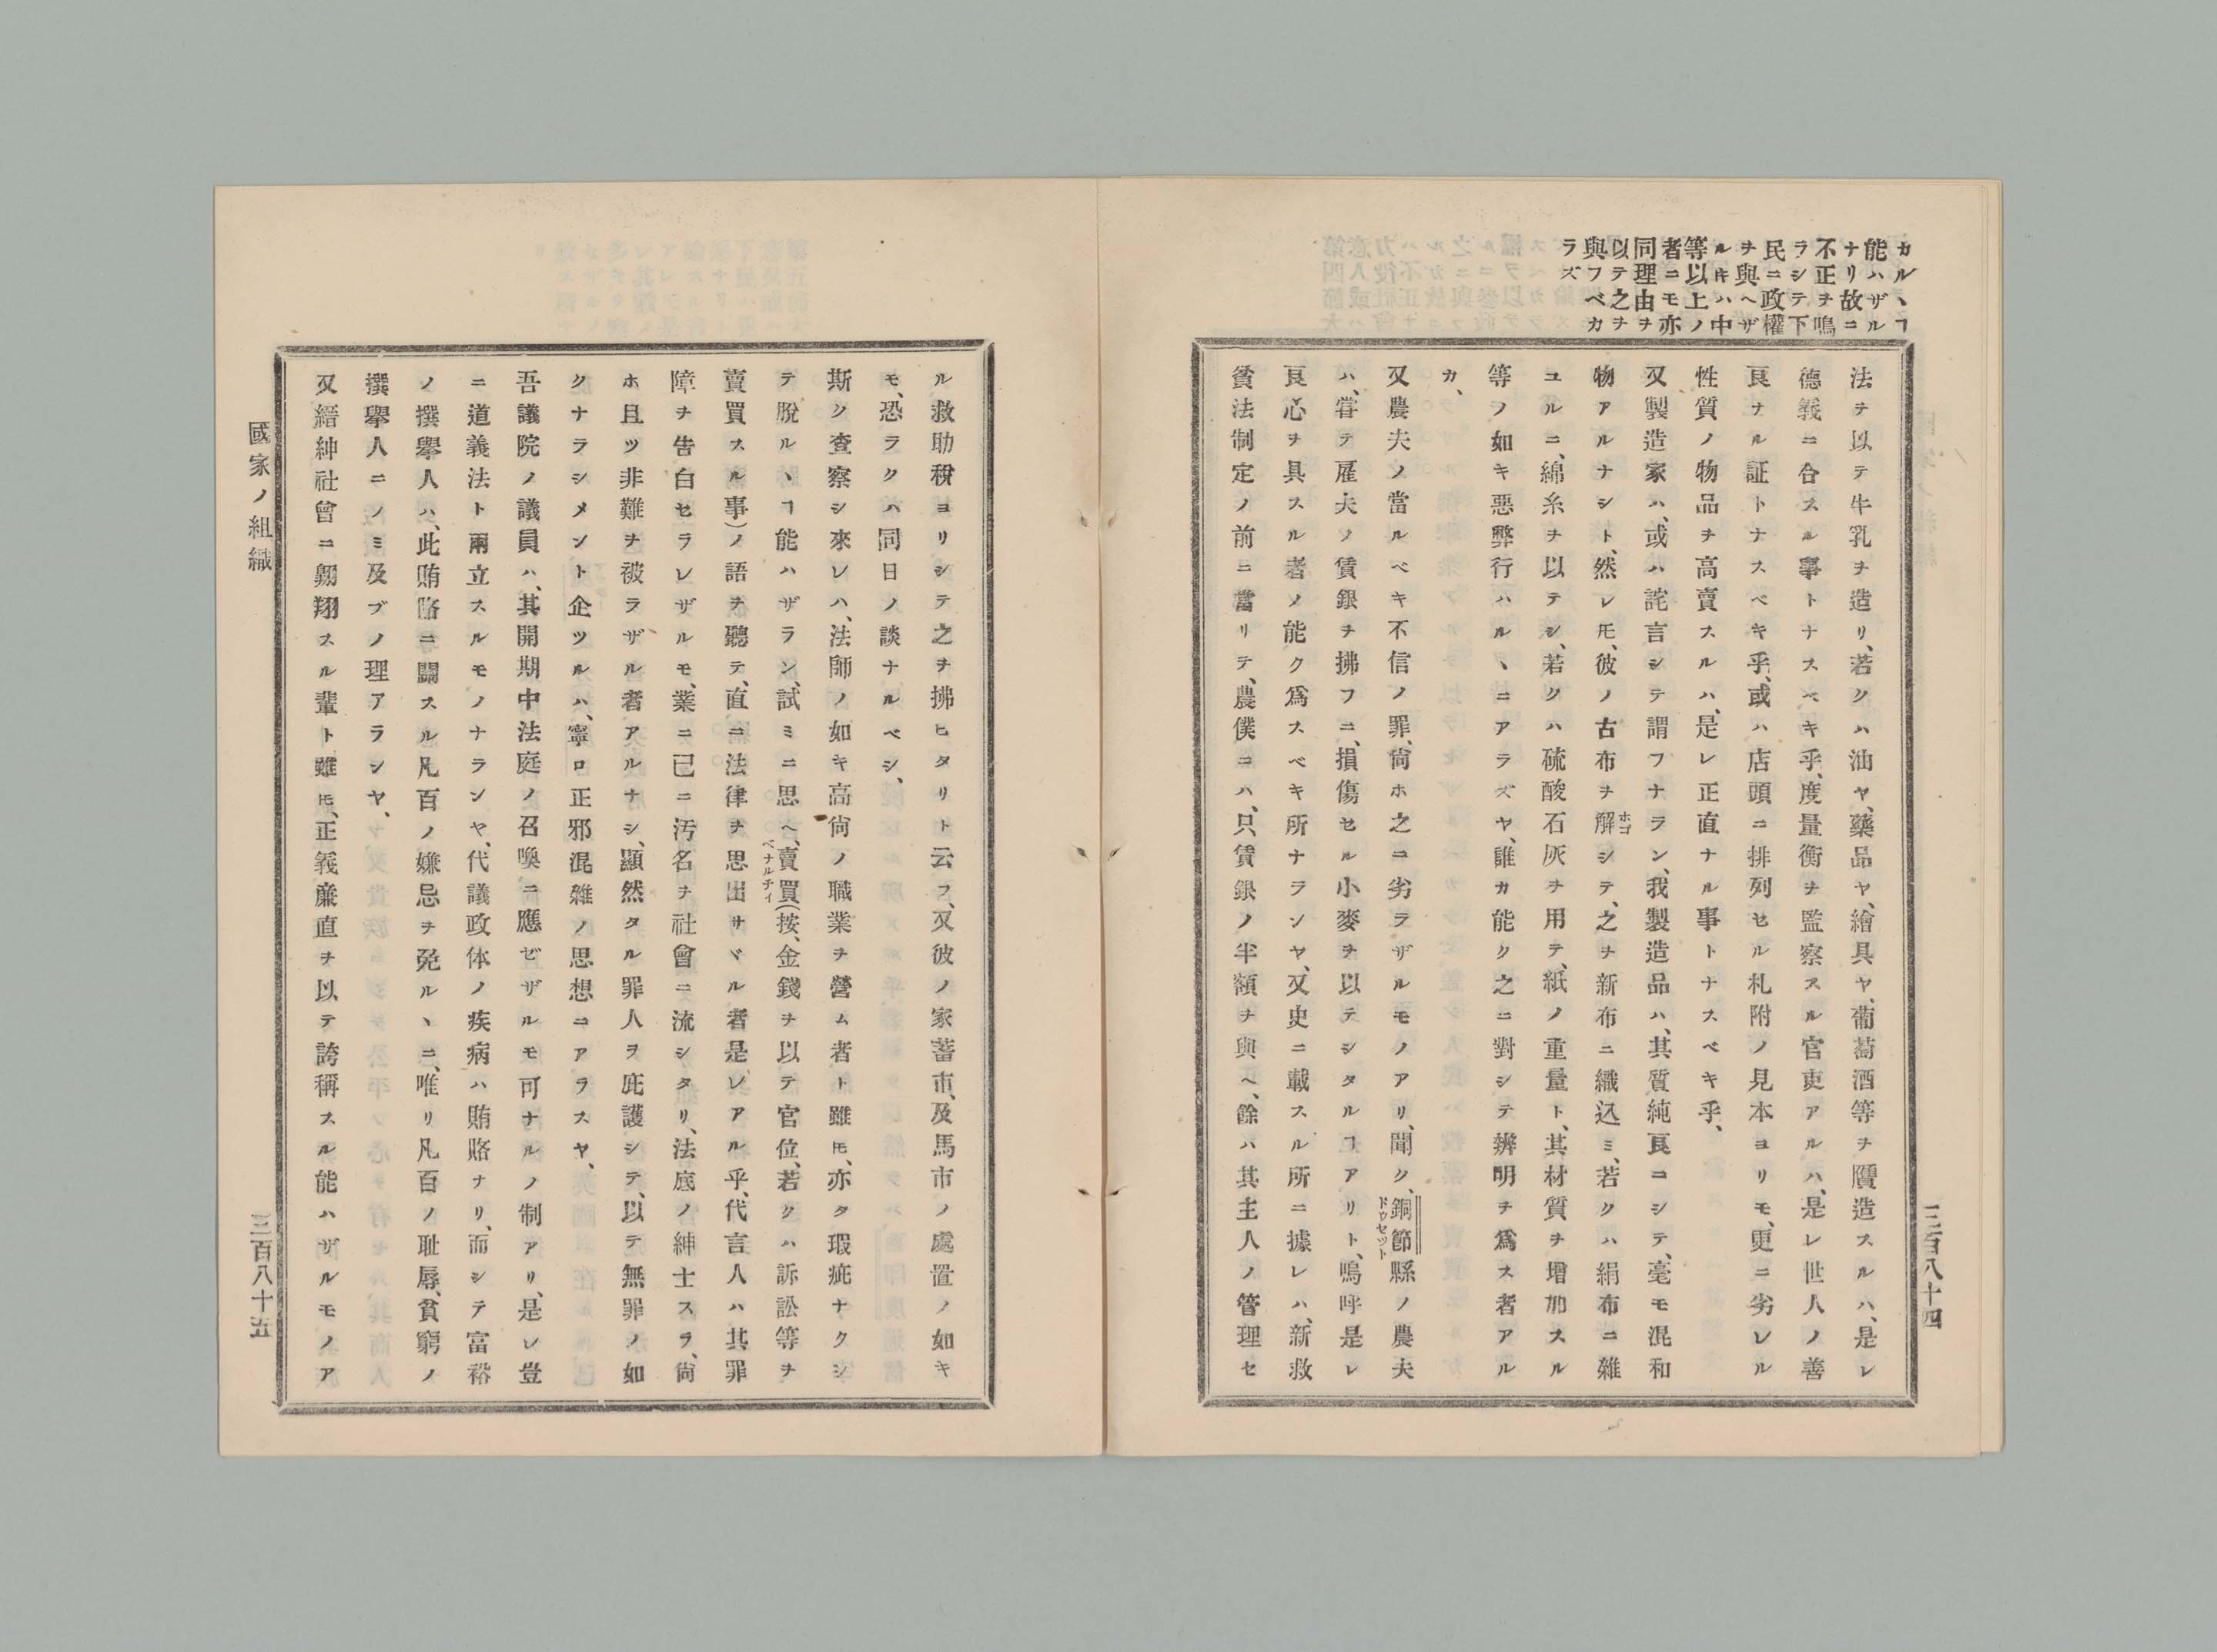 カルヽヿ
能ハザル
ナリ故ニ
不正ヲ鳴
ラシテ下
民ニ政權
ヲ與ヘザ
ルキハ中
等以上ノ
者ニモ亦
同理由ヲ
以テ之ヲ
與フベカ
ラズ
三百八十四
法ヲ以テ牛乳ヲ造リ、若クハ油ヤ、藥品ヤ、繪具ヤ、葡萄酒等ヲ贋造スルハ、是レ
德義ニ合スル事トナスベキ乎、度量衡ヲ監察スル官吏アルハ、是レ世人ノ善
良ナル証トナスベキ乎、或ハ店頭ニ排列セル札附ノ見本ヨリモ、更ニ劣レル
性質ノ物品ヲ高賣スルハ、是レ正直ナル事トナスベキ乎、
又製造家ハ、或ハ詫言シテ謂フナラン、我製造品ハ、其質純良ニシテ、毫モ混和
物アルナシト、然レ𪜈、彼ノ古布ヲ解シテ、之ヲ新布ニ織込ミ、若クハ絹布ニ雜
ホゴ
ユルニ、綿糸ヲ以テシ、若クハ硫酸石灰ヲ用テ、紙ノ重量ト、其材質ヲ增加スル
等ノ如キ惡弊行ハルヽニアラズヤ、誰カ能ク之ニ對シテ辨明ヲ爲ス者アル
カ、
又農夫ノ當ルベキ不信ノ罪、尙ホ之ニ劣ラザルモノアリ、聞ク、銅節縣ノ農夫
ドウセット
ハ、甞テ雇夫ノ賃銀ヲ拂フニ、損傷セル小麥ヲ以テシタルヿアリト、嗚呼是レ
良心ヲ具スル者ノ能ク爲スベキ所ナランヤ、又史ニ載スル所ニ據レハ、新救
貧法制定ノ前ニ當リテ、農僕ニハ、只賃銀ノ半額ヲ與ヘ、餘ハ其主人ノ管理セ
ル救助稅ヨリシテ之ヲ拂ヒタリト云フ、又彼ノ家蓄市、及馬市ノ處置ノ如キ
モ、恐ラクハ同日ノ談ナルベシ、
斯ク查察シ來レハ、法師ノ如キ高尙ノ職業ヲ營ム者ト雖𪜈、亦タ瑕疵ナクシ
テ脫ルヽヿ能ハザラン、試ミニ思ヘ、賣買(按、金錢ヲ以テ官位、若クハ訴訟等ヲ
ベナルチイ
賣買スル事)ノ語ヲ聽テ、直ニ法律ヲ思出サヾル者是レアル乎、代言人ハ其罪
障ヲ告白セラレザルモ、業ニ已ニ汚名ヲ社會ニ流シタリ、法庭ノ紳士スラ、尙
ホ且ツ非難ヲ被ラザル者アルナシ、顯然タル罪人ヲ庇護シテ、以テ無罪ノ如
クナラシメント企ツルハ、寧ロ正邪混雜ノ思想ニアラスヤ、
吾議院ノ議員ハ、其開期中法庭ノ召喚ニ應ゼザルモ可ナルノ制アリ、是レ豈
ニ道義法ト兩立スルモノナランヤ、代議政体ノ疾病ハ賄賂ナリ、而シテ富裕
ノ撰擧人ハ、此賄賂ニ關スル凡百ノ嫌忌ヲ免ルヽニ、唯リ凡百ノ耻辱、貧窮ノ
撰擧人ニノミ及ブノ理アラシヤ、
又縉紳社會ニ翺翔スル輩ト雖𪜈、正義廉直ヲ以テ誇稱スル能ハザルモノア
國家ノ組織
三百八十五